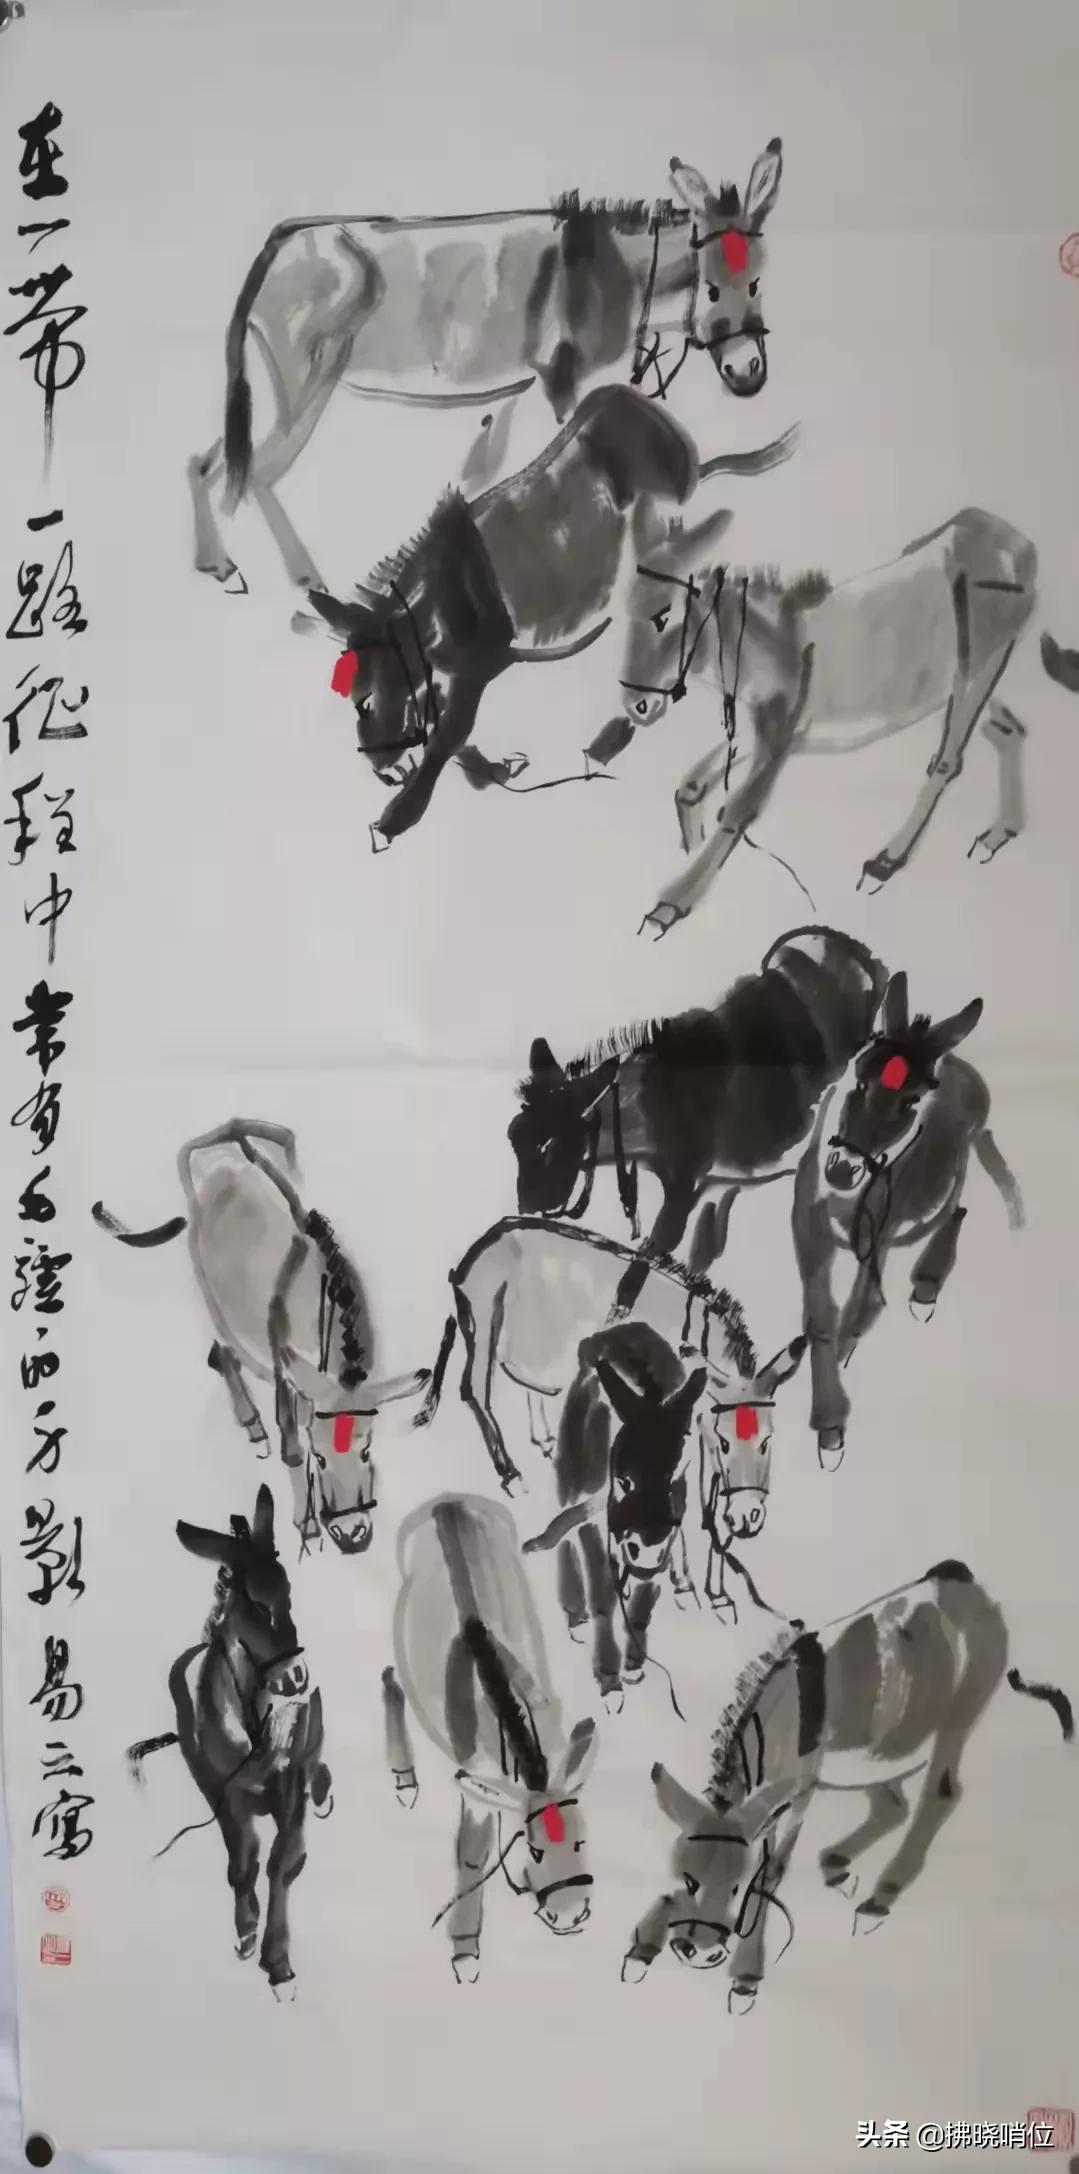 在一带一路征程中常有毛驴的身影 易云写
头条 @拂晓哨位